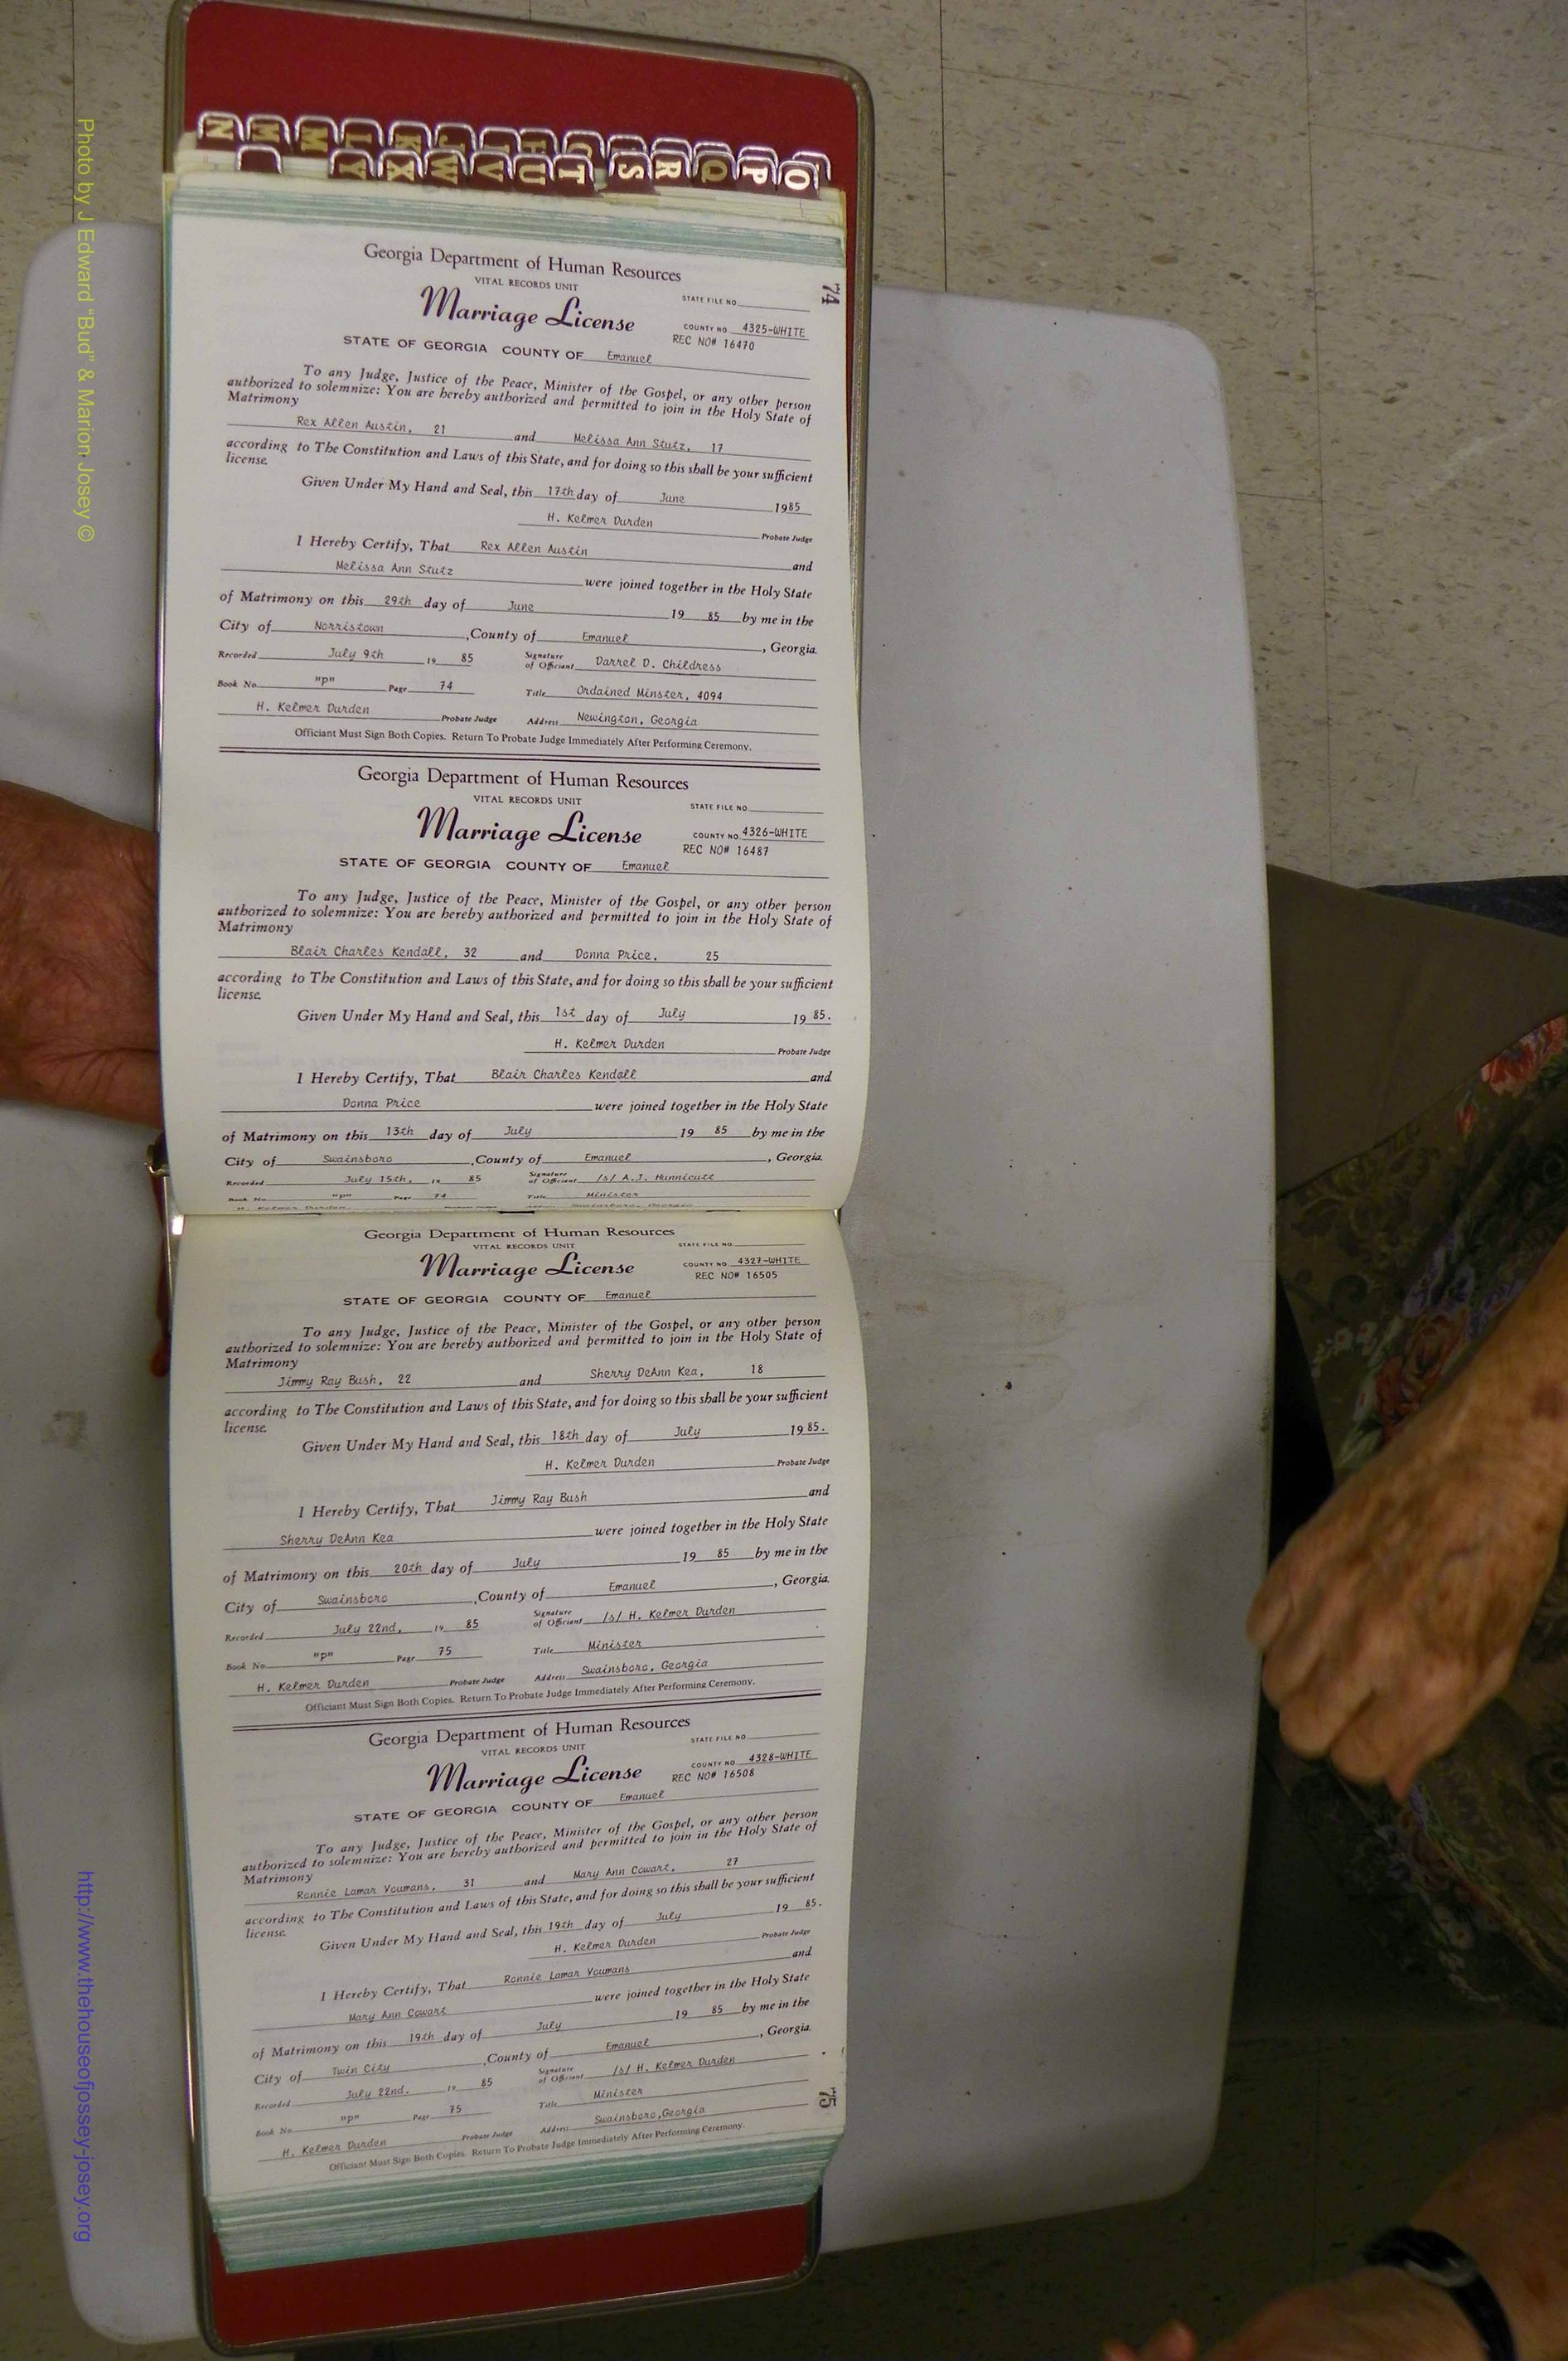 N M M L K J I H G S R Q P O
Y X W V U T S R Q P O
Georgia Department of Human Resources
74
VITAL RECORDS UNIT
STATE FILE NO.
Marriage License
COUNTY NO. 4325-WHITE
REC NO# 16470
STATE OF GEORGIA COUNTY OF Emanuel
To any Judge, Justice of the Peace, Minister of the Gospel, or any other person
authorized to solemnize: You are hereby authorized and permitted to join in the Holy State of
Matrimony
Rex Allen Austin, 21 and Melissa Ann Stutz, 17
according to The Constitution and Laws of this State, and for doing so this shall be your sufficient
license.
Given Under My Hand and Seal, this 17th day of June 1985
H. Kelmer Durden Probate Judge
I Hereby Certify, That Rex Allen Austin and
Melissa Ann Stutz were joined together in the Holy State
of Matrimony on this 29th day of June 19 85 by me in the
City of Norristown, County of Emanuel, Georgia.
Recorded July 9th 19 85 Signature of Officiant Darrel D. Childress
Book No. "P" Page 74 Title Ordained Minster, 4094
H. Kelmer Durden Probate Judge Address Newington, Georgia
Officiant Must Sign Both Copies. Return To Probate Judge Immediately After Performing Ceremony.
Georgia Department of Human Resources
VITAL RECORDS UNIT
STATE FILE NO.
Marriage License
COUNTY NO. 4326-WHITE
REC NO# 16487
STATE OF GEORGIA COUNTY OF Emanuel
To any Judge, Justice of the Peace, Minister of the Gospel, or any other person
authorized to solemnize: You are hereby authorized and permitted to join in the Holy State of
Matrimony
Blair Charles Kendall, 32 and Donna Price, 25
according to The Constitution and Laws of this State, and for doing so this shall be your sufficient
license.
Given Under My Hand and Seal, this 1st day of July 19 85.
H. Kelmer Durden Probate Judge
I Hereby Certify, That Blair Charles Kendall and
Donna Price were joined together in the Holy State
of Matrimony on this 13th day of July 19 85 by me in the
City of Swainsboro, County of Emanuel, Georgia.
Recorded July 15th, 19 85 Signature of Officiant /s/ A.J. Hunnicutt
Book No. "P" Page 74 Title Minister
H. Kelmer Durden, Swainsboro, Georgia
Georgia Department of Human Resources
VITAL RECORDS UNIT
STATE FILE NO.
Marriage License
COUNTY NO. 4327-WHITE
REC NO# 16505
STATE OF GEORGIA COUNTY OF Emanuel
To any Judge, Justice of the Peace, Minister of the Gospel, or any other person
authorized to solemnize: You are hereby authorized and permitted to join in the Holy State of
Matrimony
Jimmy Ray Bush, 22 and Sherry DeAnn Kea, 18
according to The Constitution and Laws of this State, and for doing so this shall be your sufficient
license.
Given Under My Hand and Seal, this 18th day of July 1985.
H. Kelmer Durden Probate Judge
I Hereby Certify, That Jimmy Ray Bush and
Sherry DeAnn Kea were joined together in the Holy State
of Matrimony on this 20th day of July 19 85 by me in the
City of Swainsboro, County of Emanuel, Georgia.
Recorded July 22nd, 19 85 Signature of Officiant /s/ H. Kelmer Durden
Book No. "P" Page 75 Title Minister
H. Kelmer Durden Probate Judge Address Swainsboro, Georgia
Officiant Must Sign Both Copies. Return To Probate Judge Immediately After Performing Ceremony.
Georgia Department of Human Resources
VITAL RECORDS UNIT
STATE FILE NO.
Marriage License
COUNTY NO. 4328-WHITE
REC NO# 16508
STATE OF GEORGIA COUNTY OF Emanuel
To any Judge, Justice of the Peace, Minister of the Gospel, or any other person
authorized to solemnize: You are hereby authorized and permitted to join in the Holy State of
Matrimony
Ronnie Lamar Youmans, 31 and Mary Ann Cowart, 27
according to The Constitution and Laws of this State, and for doing so this shall be your sufficient
license.
Given Under My Hand and Seal, this 19th day of July 19 85.
H. Kelmer Durden Probate Judge
I Hereby Certify, That Ronnie Lamar Youmans and
Mary Ann Cowart were joined together in the Holy State
of Matrimony on this 19th day of July 19 85 by me in the
City of Twin City, County of Emanuel, Georgia.
Recorded July 22nd. 19 85 Signature of Officiant /s/ H. Kelmer Durden
Book No. "P" Page 75 Title Minister
H. Kelmer Durden Probate Judge Address Swainsboro, Georgia
Officiant Must Sign Both Copies. Return To Probate Judge Immediately After Performing Ceremony.
75
Photo by J Edward "Bud" & Marion Josey ©
http://www.thehouseofjossey-josey.org